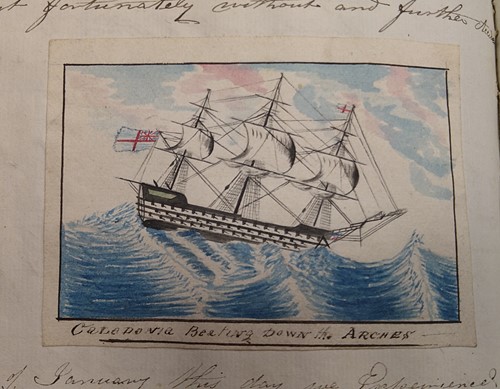 fortunately without and further
CALEDONIA Beating DOWN the ARCHES
of January this day we Experienced